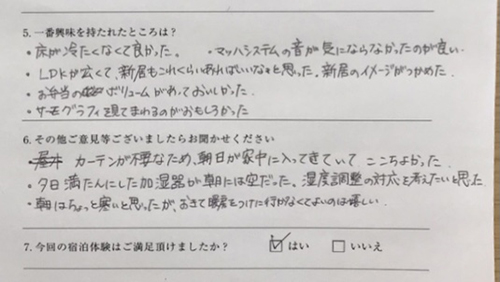 5. 一番興味を持たれたところは？
・床が冷たくなくて良かった。 ・マッハシステムの音が気にならなかったのが良い
・LDKが広くて、新居もこれくらいあればいいなぁと思った。新居のイメージがつかめた。
・お弁当のボリュームがあっておいしかった。
・サーモグラフィを見てまわるのがおもしろかった
6. その他ご意見等ございましたらお聞かせください
・カーテンが不要なため、朝日が家中に入ってきていて ここちよかった。
・夕日満たんにした加湿器が朝には空だった、湿度調整の対応を考えたいと思った
・朝はちょっと寒いと思ったが、おきて暖房をつけに行かなくてよいのは嬉しい。
7. 今回の宿泊体験はご満足頂けましたか？ ☑はい □いいえ